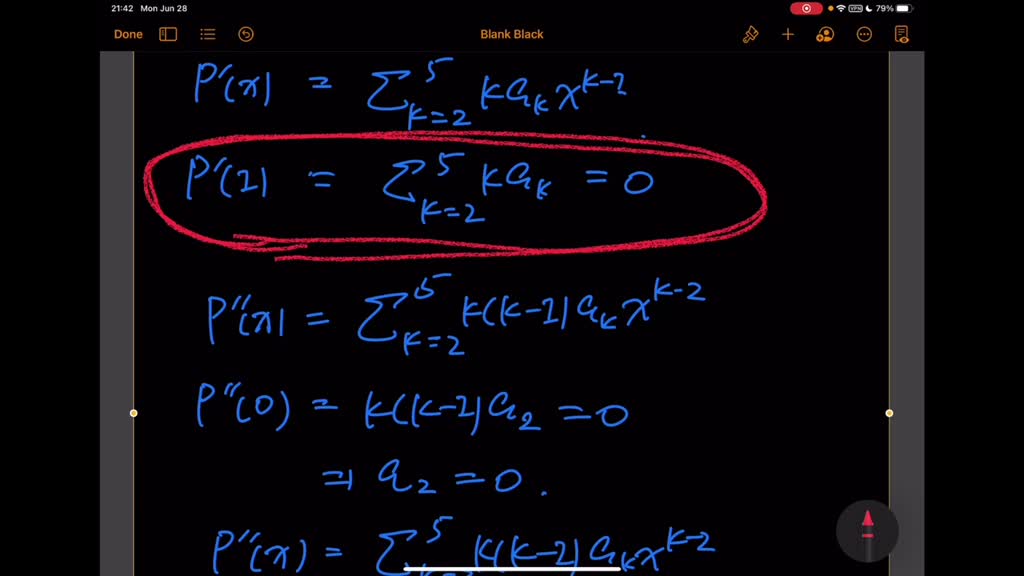 21:42 Mon Jun 28 VPN 79%
Done Blank Black
P'(x) = ∑_{k=2}^{5} k a_k x^{k-1}
P'(1) = ∑_{k=2}^{5} k a_k = 0
P''(x) = ∑_{k=2}^{5} k(k-1) a_k x^{k-2}
P''(0) = k(k-1) a_2 = 0
⇒ a_2 = 0.
P''(x) = ∑^{5} k(k-1) a_k x^{k-2}